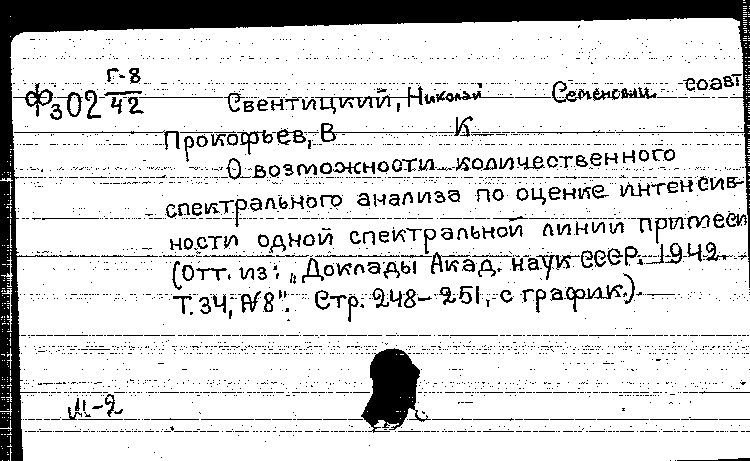 Г-8
Фз02 42
Свентицкий, Николай Семенович соавт
Прокофьев, В К
О возможности количественного
спектрального анализа по оценке интенсив-
ности одной спектральной линии примеси
(Отт. из: „Доклады Акад. наук СССР. 1942.
Т. 34, №8". Стр. 248-251, с график.).
М-2